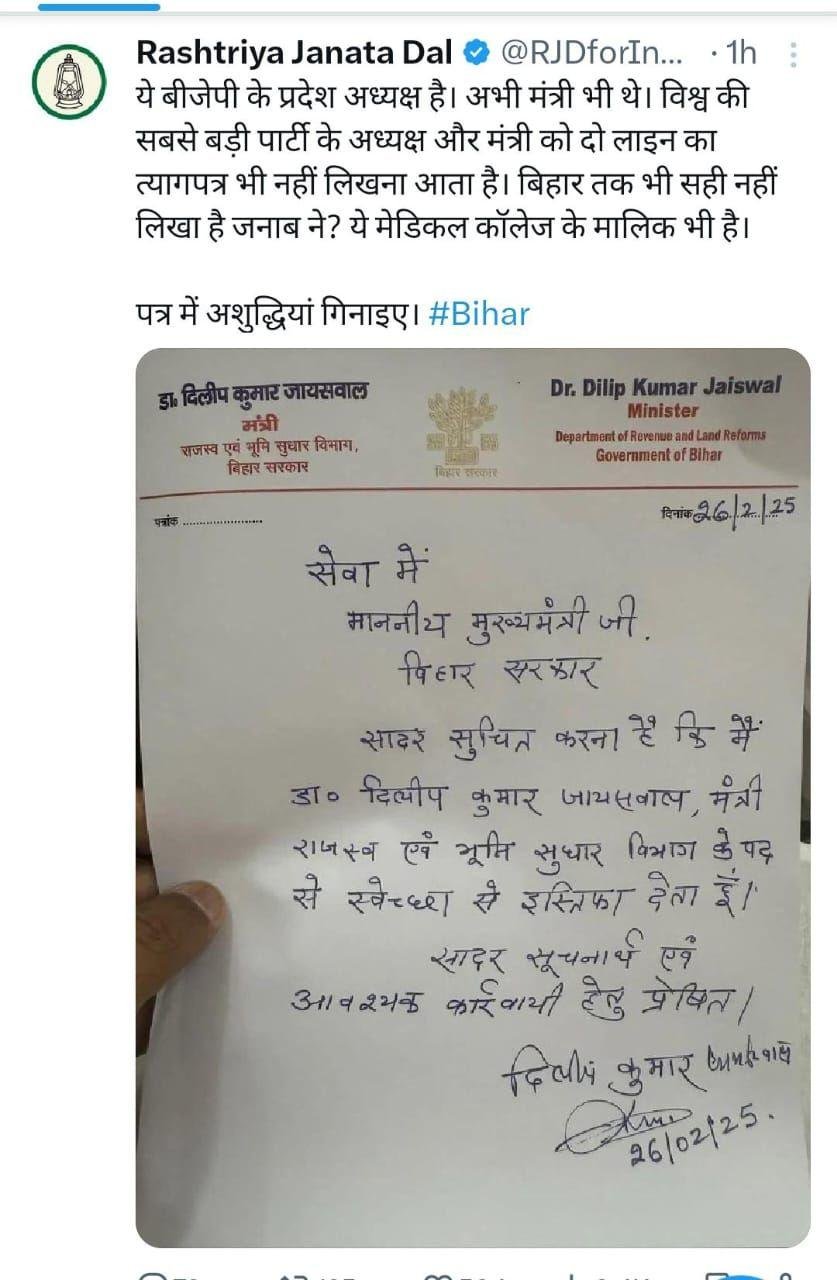 Rashtriya Janata Dal @RJDforIn... · 1h
ये बीजेपी के प्रदेश अध्यक्ष है। अभी मंत्री भी थे। विश्व की
सबसे बड़ी पार्टी के अध्यक्ष और मंत्री को दो लाइन का
त्यागपत्र भी नहीं लिखना आता है। बिहार तक भी सही नहीं
लिखा है जनाब ने? ये मेडिकल कॉलेज के मालिक भी है।
पत्र में अशुद्धियां गिनाइए। #Bihar
डा० दिलीप कुमार जायसवाल
मंत्री
राजस्व एवं भूमि सुधार विभाग,
बिहार सरकार
बिहार सरकार
Dr. Dilip Kumar Jaiswal
Minister
Department of Revenue and Land Reforms
Government of Bihar
पत्रांक ........................
दिनांक 26/2/25
सेवा में
माननीय मुख्यमंत्री जी.
विहार सरकार
सादर सुचित करना है कि मैं
डा० दिलीप कुमार जायसवाल, मंत्री
राजस्व एवं भूमि सुधार विभाग के पद
से स्वेच्छा से इस्तिफा देता हूँ।
सादर सूचनार्थ एवं
आवश्यक कार्रवायी हेतु प्रेषित।
दिलीप कुमार जायसवाल
26/02/25.